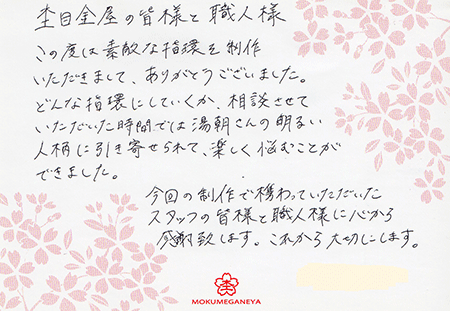 杢目金屋の皆様と職人様
この度は素敵な指環を制作
いただきまして、ありがとうございました。
どんな指環にしていくか、相談させて
いただいた時間では湯朝さんの明るい
人柄に引き寄せられて、楽しく悩むことが
できました。
今回の制作で携わっていただいた
スタッフの皆様と職人様に心から
感謝致します。これから大切にします。
杢
MOKUMEGANEYA